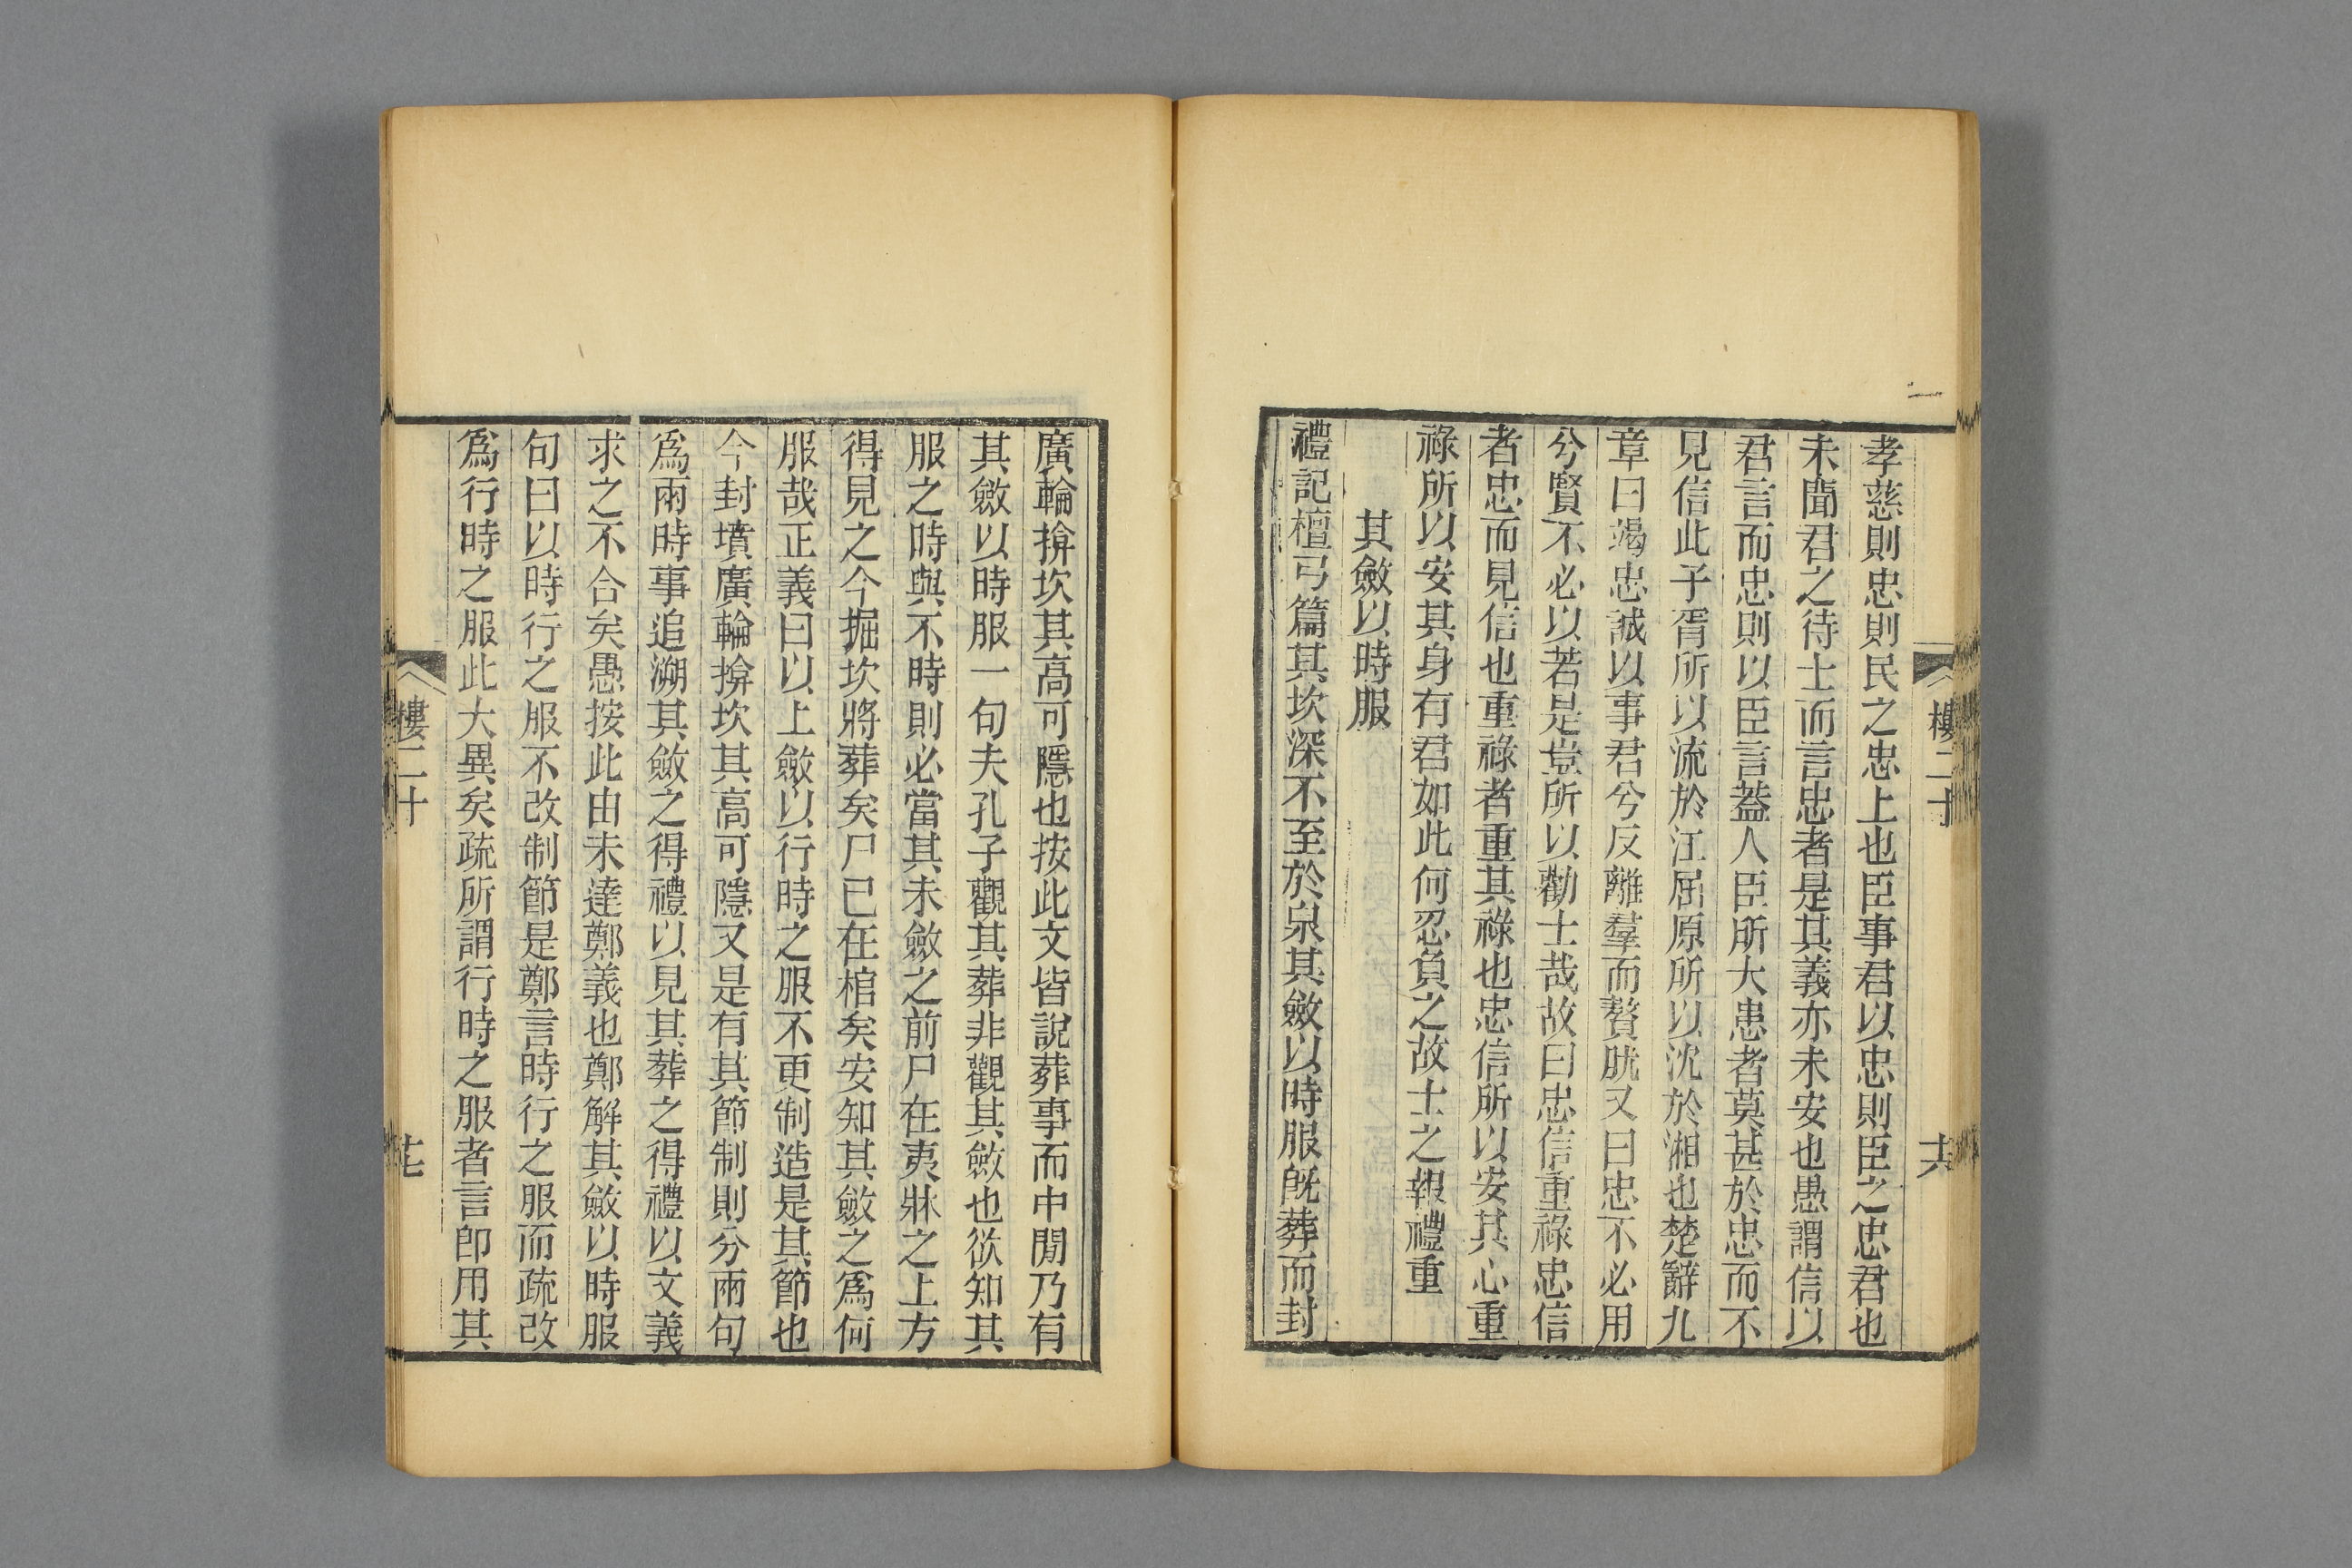 孝慈則忠則民之忠上也臣事君以忠則臣之忠君也
未聞君之待士而言忠者是其義亦未安也愚謂信以
君言而忠則以臣言葢人臣所大患者莫甚於忠而不
見信此子胥所以流於江屈原所以沈於湘也楚辭九
章曰竭忠誠以事君兮反離羣而贅肬又曰忠不必用
兮賢不必以若是豈所以勸士哉故曰忠信重祿忠信
者忠而見信也重祿者重其祿也忠信所以安其心重
祿所以安其身有君如此何忍負之故士之報禮重
其斂以時服
禮記檀弓篇其坎深不至於泉其斂以時服旣葬而封
樓二十
廣輪揜坎其高可隱也按此文皆說葬事而中閒乃有
其斂以時服一句夫孔子觀其葬非觀其斂也欲知其
服之時與不時則必當其未斂之前尸在夷牀之上方
得見之今掘坎將葬矣尸已在棺矣安知其斂之爲何
服哉正義曰以上斂以行時之服不更制造是其節也
今封墳廣輪揜坎其高可隱又是有其節制則分兩句
爲兩時事追溯其斂之得禮以見其葬之得禮以文義
求之不合矣愚按此由未達鄭義也鄭解其斂以時服
句曰以時行之服不改制節是鄭言時行之服而疏改
爲行時之服此大異矣疏所謂行時之服者言卽用其
樓二十